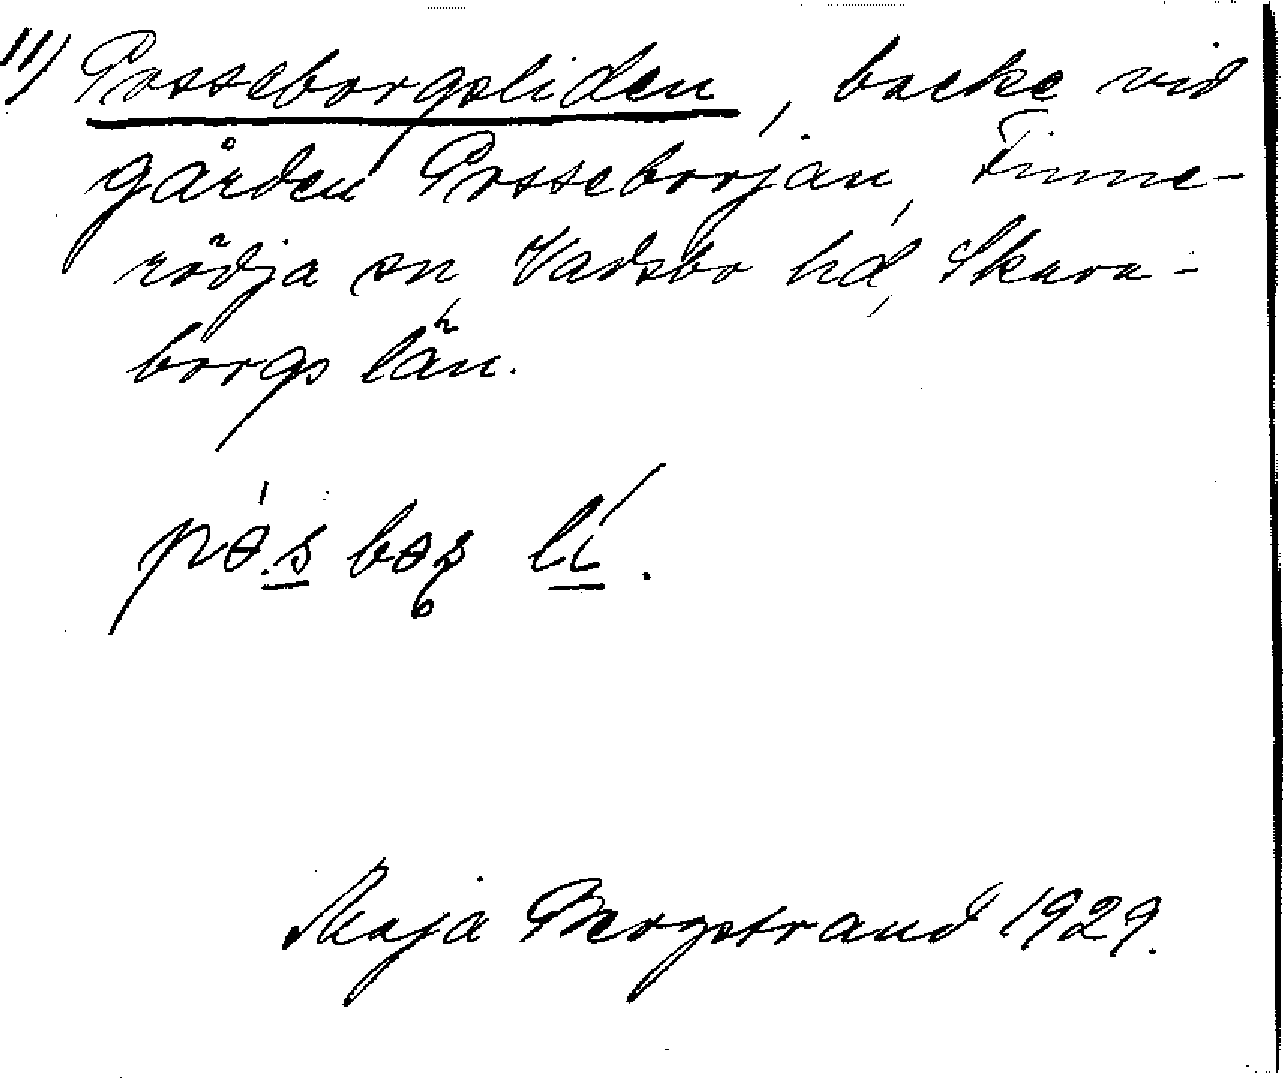 11) Posseborgsliden, backe vid
gården Posseborjan, Finne-
rödja sn, Vadsbo hd, Skara-
borgs län.
Maja Bergstrand 1929.